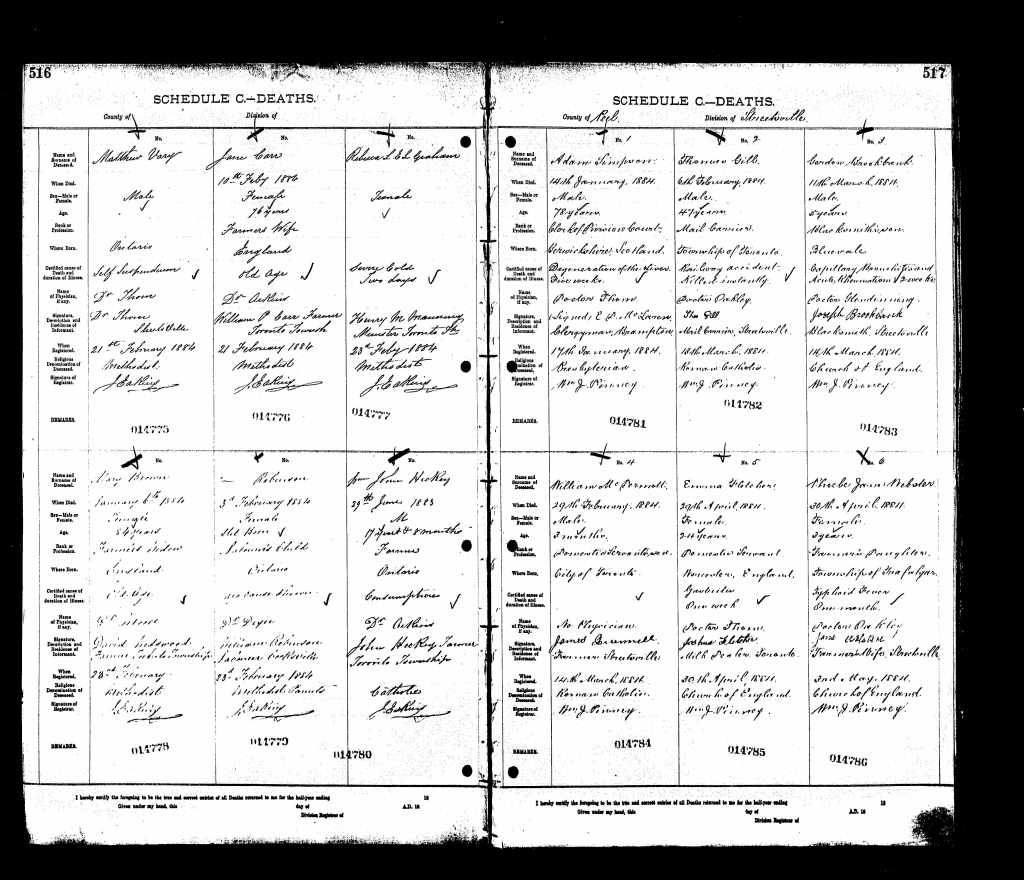 516
SCHEDULE C.—DEATHS.
County of
Division of
No. No. No.
Name and Surname of Deceased. Matthew Jane Carr Graham
When Died. 10th Feby 1884
Sex—Male or Female. Male Female Female
Age. 76 years
Rank or Profession. Farmers Wife
Where Born. Ontario England
Certified cause of Death and duration of Illness. Self Suspension Old Age Cold
Two days
Name of Physician, if any. Dr Thom Dr
Signature, Description and Residence of Informant. Dr Thom William P Carr Farmer Henry
Toronto Minister Toronto
When Registered. 21st February 1884 21 February 1884 23d Feby 1884
Religious Denomination of Deceased. Methodist Methodist Methodist
Signature of Registrar.
REMARKS.
014775 014776 014777
No. No. No.
Name and Surname of Deceased. Mary Brown — Robinson John Hickey
When Died. January 6th 1884 3d February 1884 29th June 1883
Sex—Male or Female. Female Female M
Age. 84 years Still Born 17 Years & 8 months
Rank or Profession. Farmers Widow Child Farmer
Where Born. England Ontario Ontario
Certified cause of Death and duration of Illness. Old Age no cause known Consumption
Name of Physician, if any. Dr Dr Dr
Signature, Description and Residence of Informant. David William Robinson John Hickey Farmer
Farmer Toronto Township Farmer Toronto Township
When Registered. 23d February 23d February 1884
Religious Denomination of Deceased. Methodist Methodist Catholic
Signature of Registrar.
REMARKS.
014778 014779 014780
I hereby certify the foregoing to be the true and correct entries of all Deaths returned to me for the half-year ending 18
Given under my hand, this day of A.D. 18
Division Registrar of
517
SCHEDULE C.—DEATHS.
County of Peel Division of Streetsville
No. 1 No. 2 No. 3
Name and Surname of Deceased. Adam Simpson Thomas Gill Gordon Brookbank
When Died. 14th January, 1884. 6th February, 1884. 11th March, 1884.
Sex—Male or Female. Male. Male. Male.
Age. 78 years 47 years 5 years
Rank or Profession. Clerk of Division Court Mail Carrier Blacksmith's son
Where Born. Berwickshire, Scotland. Township of Toronto Bluevale
Certified cause of Death and duration of Illness. Degeneration of the Liver Railway accident Capillary Bronchitis and
Five weeks. Killed instantly. Acute Rheumatism 2 weeks
Name of Physician, if any. Doctor Thom Doctor Ockley Doctor
Signature, Description and Residence of Informant. Signed Tho Gill Joseph Brookbank
Clergyman, Brampton Mail Carrier, Streetsville Blacksmith, Streetsville
When Registered. 17th January, 1884. 18th March, 1884. 14th March 1884.
Religious Denomination of Deceased. Presbyterian Roman Catholic Church of England
Signature of Registrar. Wm J. Pinney. Wm J. Pinney. Wm J. Pinney.
REMARKS.
014781 014782 014783
No. 4 No. 5 No. 6
Name and Surname of Deceased. William McDermott Emma Fletcher Phoebe Jane Webster
When Died. 29th February, 1884. 29th April, 1884. 30th April, 1884.
Sex—Male or Female. Male. Female. Female.
Age. 3 months. 24 years. 3 years.
Rank or Profession. Domestic Servant's son Domestic Servant Farmer's Daughter.
Where Born. City of Toronto Worcester, England. Township of Trafalgar.
Certified cause of Death and duration of Illness. Gastritis Typhoid Fever
One week One month
Name of Physician, if any. No Physician Doctor Thom Doctor Ockley
Signature, Description and Residence of Informant. James Joshua Fletcher Jane Webster
Farmer Streetsville Milk Dealer, Toronto Farmer's Wife, Streetsville
When Registered. 14th March, 1884. 30th April, 1884. 2nd May, 1884.
Religious Denomination of Deceased. Roman Catholic. Church of England. Church of England
Signature of Registrar. Wm J. Pinney. Wm J. Pinney. Wm J. Pinney.
REMARKS.
014784 014785 014786
I hereby certify the foregoing to be the true and correct entries of all Deaths returned to me for the half-year ending 18
Given under my hand, this day of A.D. 18
Division Registrar of